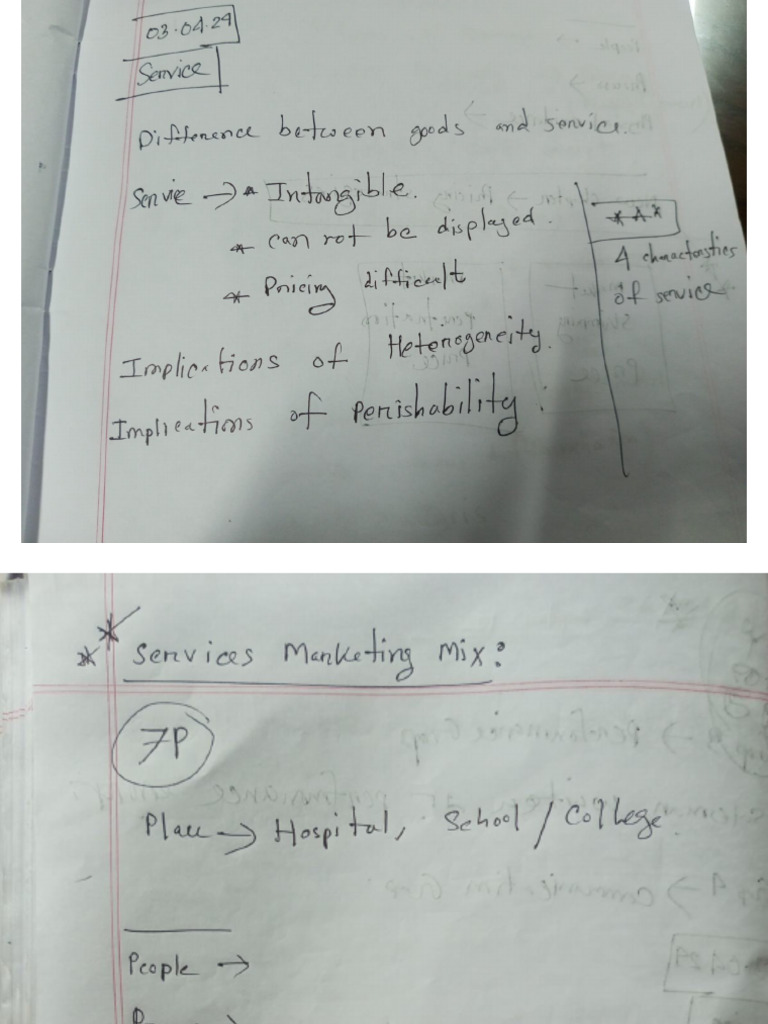 03.04.24
Service
Difference between goods and service.
Servie → * Intangible.
* can not be displayed.
* Pricing difficult
* A *
4 charactersties
of service
Implications of Heterogeneity.
Implications of perishability.
** Services Marketing Mix:
7P
Place → Hospital, School / College.
People →